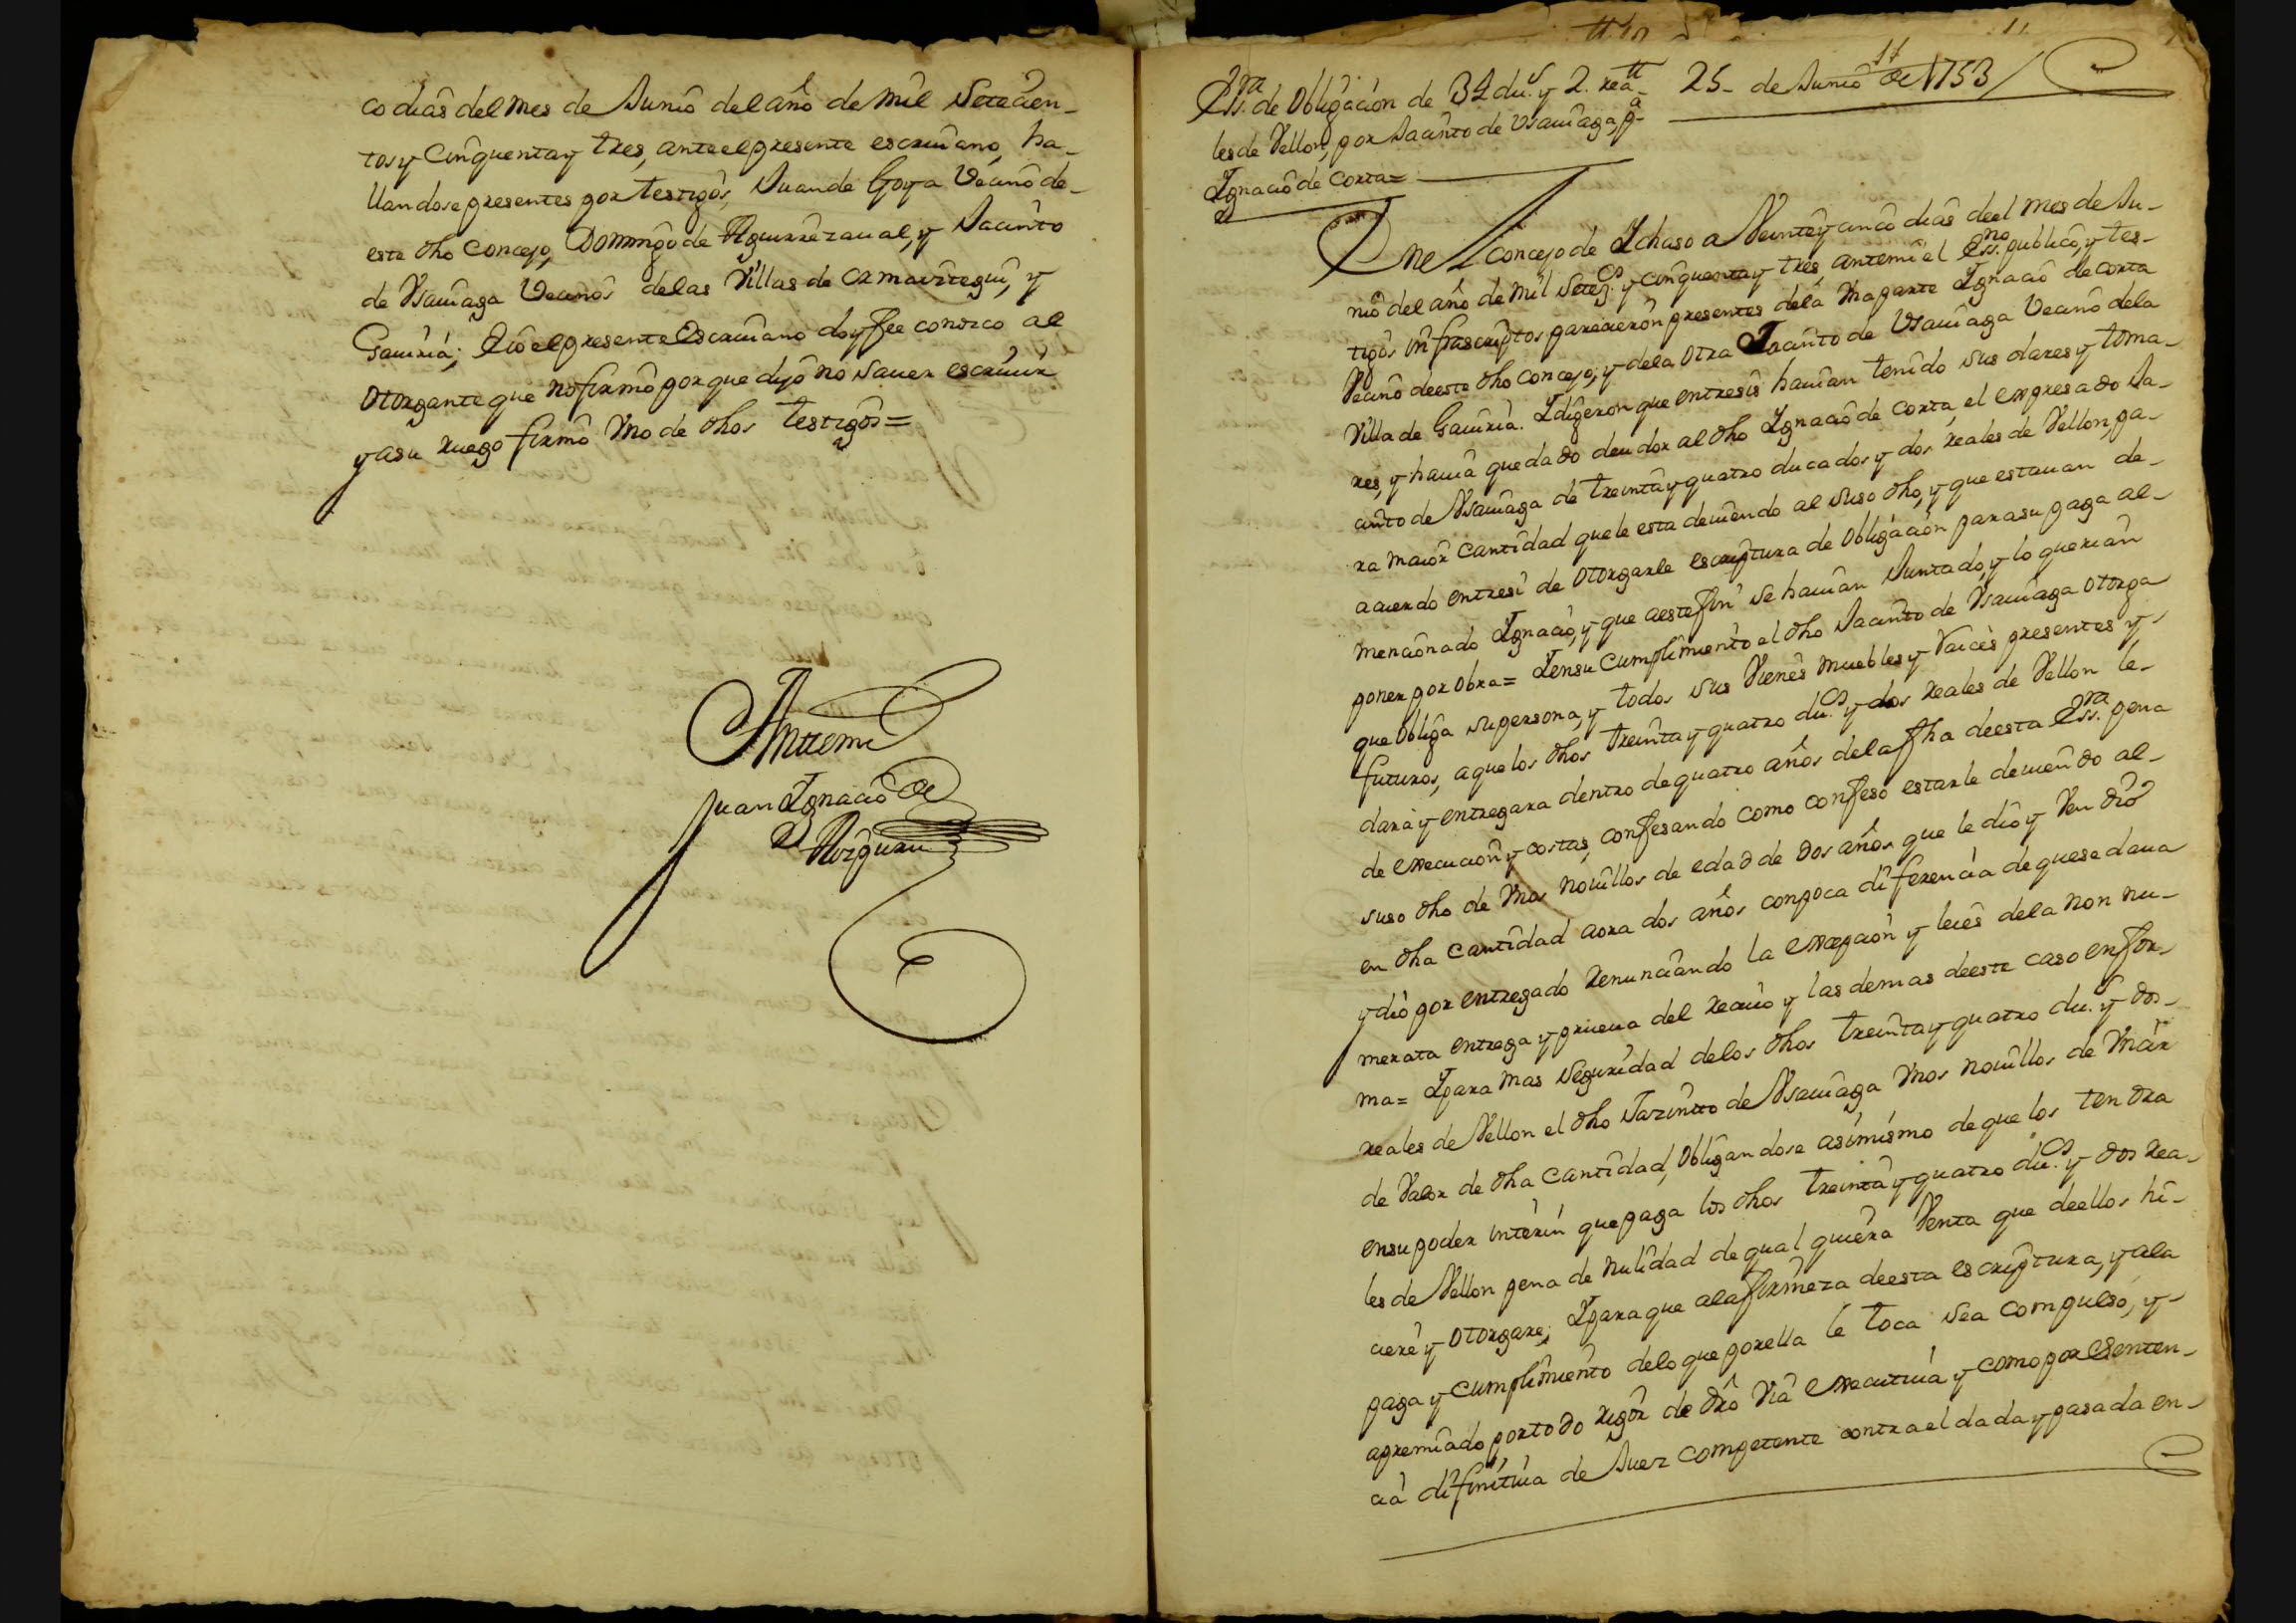 co dias del mes de Junio del año de mil setecien-
tos y cinquenta y tres, ante el presente escriuano, ha-
llandose presentes por testigos, Juan de Goya vecino de-
este dho concejo, Domingo de Aguirrezaual, y Jacinto
de Vsauiaga vecinos de las Villas de ormaiztegui, y
Gauiria; E io el presente Escriuano doy fee conozco al
otorgante que no firmô por que dijo no sauer escriuir
y a su ruego firmô vno de dhos testigos=
Ante mi
Juan Ignacio de
Aizguru
11
Essra de Obligacion de 34 dus y 2. rea-
les de Vellon, por Jacinto de Vsauiaga, pa
Ignacio de Corta=
25- de Junio de 1753
En el concejo de Ichaso a Veinte y cinco dias del mes de Ju-
nio del año de mil seteçs y cinquenta y tres, ante mi el Essno publico, y tes-
tigos infrascriptos parecieron presentes de la vna parte Ignacio de corta
Vecino de este dho concejo; y de la otra Jacinto de Vsauiaga Vecino de la
Villa de Gauiria. I digeron que entre sis hauian tenido sus dares y toma-
res, y hauia quedado deudor al dho Ignacio de corta, el expresado Ja-
cinto de Vsauiaga de treinta y quatro ducados y dos reales de Vellon, pa-
ra maior cantidad que le esta deuiendo al suso dho, y que estauan de-
acuerdo entre si de otorgarle escriptura de obligacion para su paga al-
mencionado Ignacio, y que a este fin se hauian Juntado, y lo querian
poner por obra= I en su cumplimiento el dho Jacinto de Vsauiaga otorga
que obliga su persona, y todos sus Vienes muebles y Raices presentes y-
futuros, a que los dhos treinta y quatro dus y dos reales de Vellon le-
dara y entregara dentro de quatro años de la fha de esta Essra pena
de execucion y costas, confesando como confesô estarle deuiendo al-
suso dho de vnos nouillos de edad de dos años que le dio y Vendio
en dha cantidad aora dos años con poca diferencia de que se daua
y diô por entregado renunciando la excepcion y leies de la non nu-
merata entrega y prueua del reciuo y las demas de este caso en for-
ma= I para mas seguridad de los dhos treinta y quatro dus y dos-
reales de Vellon el dho Jazinto de Vsauiaga vnos nouillos de
de Valor de dha cantidad, obligandose asimismo de que los tendra
en su poder interin que paga los dhos treinta y quatro dus y dos rea-
les de Vellon pena de nulidad de qual quiera Venta que de ellos hi-
ciere y otorgare; I para que a la firmeza de esta escriptura, y a la
paga y cumplimiento de lo que por ella le toca sea compulso, y-
apremiado por todo rigor de dro via executiua y como por senten-
cia difinitiua de Juez competente contra el dada y pasada en-